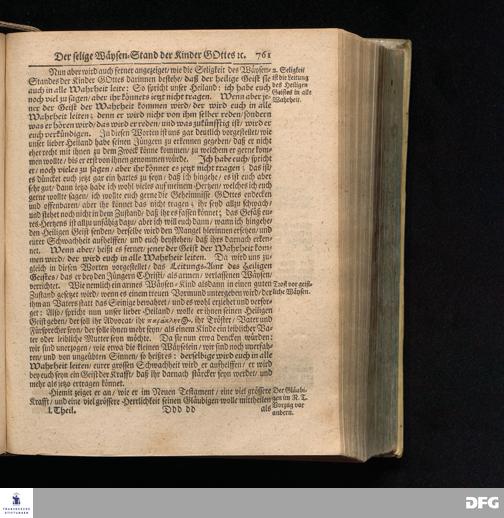 Der selige Wäysen-Stand der Kinder GOttes ꝛc. 761
Nun aber wird auch ferner angezeiget/ wie die Seligkeit des Wäysen-
Standes der Kinder GOttes darinnen bestehe/ daß der heilige Geist sie
auch in alle Wahrheit leite: So spricht unser Heiland: ich habe euch
noch viel zu sagen/ aber ihr könnets jetzt nicht tragen. Wenn aber je-
ner der Geist der Wahrheit kommen wird/ der wird euch in alle
Wahrheit leiten; denn er wird nicht von ihm selber reden/ sondern
was er hören wird/ das wird er reden/ und was zukünfftig ist/ wird er
euch verkündigen. In diesen Worten ist uns gar deutlich vorgestellet/ wie
unser lieber Heiland habe seinen Jüngern zu erkennen gegeben/ daß er nicht
eher recht mit ihnen zu dem Zweck könne kommen/ zu welchem er gerne kom-
men wollte/ bis er erst von ihnen genommen würde. Ich habe euch/ spricht
er/ noch vieles zu sagen/ aber ihr könnet es jetzt nicht tragen; das ist/
es düncket euch jetzt gar ein hartes zu seyn/ daß ich hingehe/ es ist euch aber
sehr gut/ dann jetzo habe ich wohl vieles auf meinem Hertzen/ welches ich euch
gerne wollte sagen/ ich wollte euch gerne die Geheimnisse GOttes entdecken
und offenbaren/ aber ihr könnet das nicht tragen; ihr seyd allzu schwach/
und stehet noch nicht in dem Zustand/ daß ihr es fassen könnet; das Gefäß eu-
res Hertzens ist allzu unfähig dazu/ aber ich will euch dann/ wann ich hingehe/
den Heiligen Geist senden/ derselbe wird den Mangel hierinnen ersetzen/ und
eurer Schwachheit aufhelffen/ und euch beystehen/ daß ihrs darnach erken-
net. Wenn aber/ heißt es ferner/ jener der Geist der Wahrheit kom-
men wird/ der wird euch in alle Wahrheit leiten. Da wird uns zu-
gleich in diesen Worten vorgestellet/ das Leitungs-Amt des Heiligen
Geistes/ das er bey den Jüngern Christi/ als armen/ verlassenen Wäysen/
verrichtet. Wie nemlich ein armes Wäysen-Kind alsdann in einen guten
Zustand gesetzet wird/ wenn es einem treuen Vormund untergeben wird/ der
ihm an Vaters statt das Seinige bewahret/ und es wohl erziehet und versor-
get: Also/ spricht nun unser lieber Heiland/ wolle er ihnen seinen Heiligen
Geist geben/ der soll ihr Advocat/ ihr παράκλητος, ihr Tröster/ Vater und
Fürsprecher seyn/ der solle ihnen mehr seyn/ als einem Kinde ein leiblicher Va-
ter oder leibliche Mutter seyn möchte. Da sie nun etwa dencken würden:
wir sind unerzogen/ wie etwa die kleinen Wäyselein/ wir sind noch unerfah-
ren/ und von ungeübten Sinnen/ so heißt es: derselbige wird euch in alle
Wahrheit leiten/ eurer grossen Schwachheit wird er aufhelffen/ er wird
bey euch seyn ein Geist der Krafft/ daß ihr darnach stärcker seyn werdet/ und
mehr als jetzo ertragen könnet.
Hiemit zeiget er an/ wie er im Neuen Testament/ eine viel grössere
Krafft/ und eine viel grössere Herrlichkeit seinen Gläubigen wolle mittheilen/
I. Theil. Ddd dd als
2. Seligkeit
ist die Leitung
des Heiligen
Geistes in alle
Wahrheit.
Trost vor geist-
liche Wäysen.
Der Gläubi-
gen im N. T.
Vorzug vor
andern.
FRANCKESCHE
STIFTUNGEN
DFG